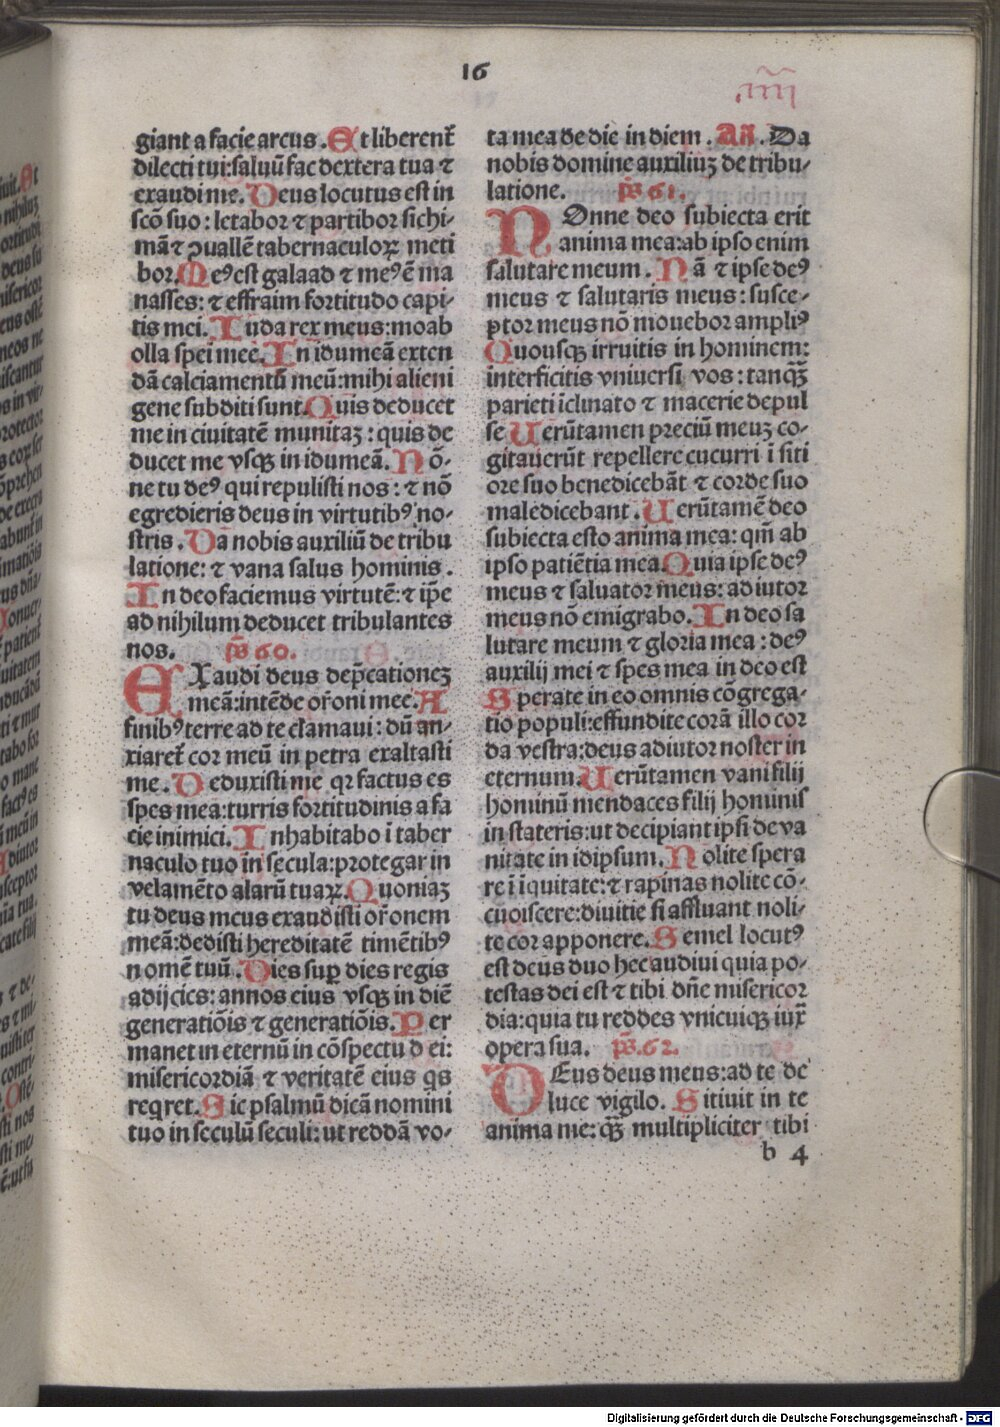 16
.iiij
giant a facie arcus . Et liberent̃
dilecti tui:saluũ fac dextera tua ⁊
exaudi me. Deus locutus est in
scõ suo : letabor ⁊ partibor sichi-
mã ⁊ ꝯuallẽ tabernaculoꝝ meti
bor. Meꝰ est galaad ⁊ meꝰ ẽ ma
nasses: ⁊ effraim fortitudo capi-
tis mei. Iuda rex meus:moab
olla spei mee. In idumeã exten
dã calciamentũ meũ:mihi alieni
gene subditi sunt. Quis deducet
me in ciuitatẽ munitaȝ : quis de
ducet me vsqȝ in idumeã. Nõ-
ne tu deꝰ qui repulisti nos : ⁊ nõ
egredieris deus in virtutibꝰ no-
stris . Da nobis auxiliũ de tribu
latione: ⁊ vana salus hominis .
In deo faciemus virtutẽ: ⁊ ip̃e
ad nihilum deducet tribulantes
nos. p̃s 60.
EXaudi deus dep̃cationeȝ
meã:intẽde or̃oni mee. A
finibꝰ terre ad te clamaui : dũ an-
xiaret̃ cor meũ in petra exaltasti
me . Deduxisti me qr factus es
spes mea:turris fortitudinis a fa
cie inimici. Inhabitabo ĩ taber
naculo tuo in secula:protegar in
velamẽto alarũ tuaꝝ. Quoniaȝ
tu deus meus exaudisti or̃onem
meã:dedisti hereditatẽ timẽtibꝰ
nomẽ tuũ . Dies suꝑ dies regis
adijcies: annos eius vsqȝ in diẽ
generatiõis ⁊ generatiõis. Per
manet in eternũ in cõspectu dei:
misericordiã ⁊ veritatẽ eius qs
reqret. Sic psalmũ dicã nomini
tuo in seculũ seculi: ut reddã vo-
ta mea de die in diem . Añ. Da
nobis domine auxiliuȝ de tribu-
latione. p̃s 61.
NOnne deo subiecta erit
anima mea:ab ipso enim
salutare meum . Nã ⁊ ipse deꝰ
meus ⁊ salutaris meus : susce-
ptor meus nõ mouebor ampliꝰ
Quousqȝ irruitis in hominem:
interficitis vniuersi vos : tanqȝ̃
parieti ĩclinato ⁊ macerie depul
se Uerũtamen preciũ meuȝ co-
gitauerũt repellere cucurri ĩ siti
ore suo benedicebãt ⁊ corde suo
maledicebant . Uerũtamẽ deo
subiecta esto anima mea: qm̃ ab
ipso patiẽtia mea. Quia ipse deꝰ
meus ⁊ saluator meus: adiutor
meus nõ emigrabo. In deo sa
lutare meum ⁊ gloria mea : deꝰ
auxilij mei ⁊ spes mea in deo est
Sperate in eo omnis cõgrega-
tio populi:effundite corã illo cor
da vestra:deus adiutor noster in
eternum. Uerũtamen vani filij
hominũ mendaces filij hominis
in stateris:ut decipiant ipsi de va
nitate in idipsum. Nolite spera
re ĩ iquitate: ⁊ rapinas nolite cõ-
cupiscere:diuitie si affluant noli-
te cor apponere. Semel locutꝰ
est deus duo hec audiui quia po-
testas dei est ⁊ tibi dñe misericor
dia:quia tu reddes vnicuiqȝ iux̃
opera sua. p̃s.62.
DEus deus meus:ad te de
luce vigilo. Sitiuit in te
anima me: qȝ̃ multipliciter tibi
b 4
Digitalisierung gefördert durch die Deutsche Forschungsgemeinschaft - DFG